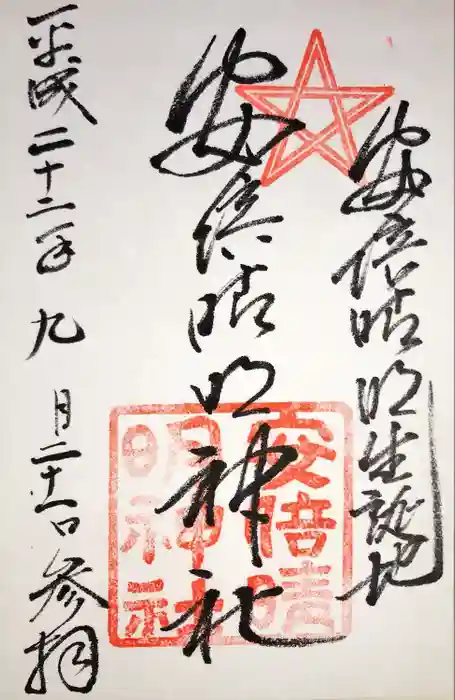 安倍晴明生誕地
安倍晴明神社
安倍晴
明神社
平成二十二年九月二十一日参拝